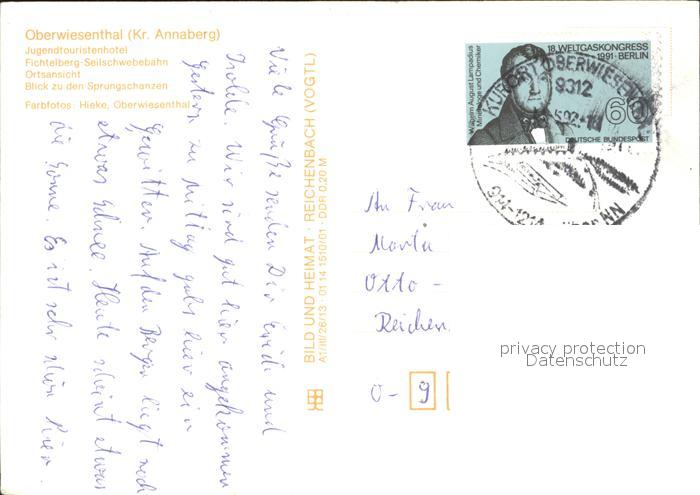 Oberwiesenthal (Kr. Annaberg)
Jugendtouristenhotel
Fichtelberg-Seilschwebebahn
Ortsansicht
Blick zu den Sprungschanzen
Farbfotos: Hieke, Oberwiesenthal
Viele Grüße senden Dir und
Wir sind gut hier angekommen
Gestern zu Mittag gabs hier ein
Gewitter. Auf den Bergen liegt noch
etwas Schnee. Heute scheint etwas
die Sonne. Es ist sehr schön hier.
BILD UND HEIMAT · REICHENBACH (VOGTL)
A1/III/26/13 · 01 14 1510/01 · DDR 0,20 M
18. WELTGASKONGRESS
1991 · BERLIN
Wilhelm August Lampadius
Mineraloge und Chemiker
60
DEUTSCHE BUNDESPOST
KURORT OBERWIESENTHAL
9312
An Frau
Marta
Otto-
Reichen
O-9
privacy protection
Datenschutz